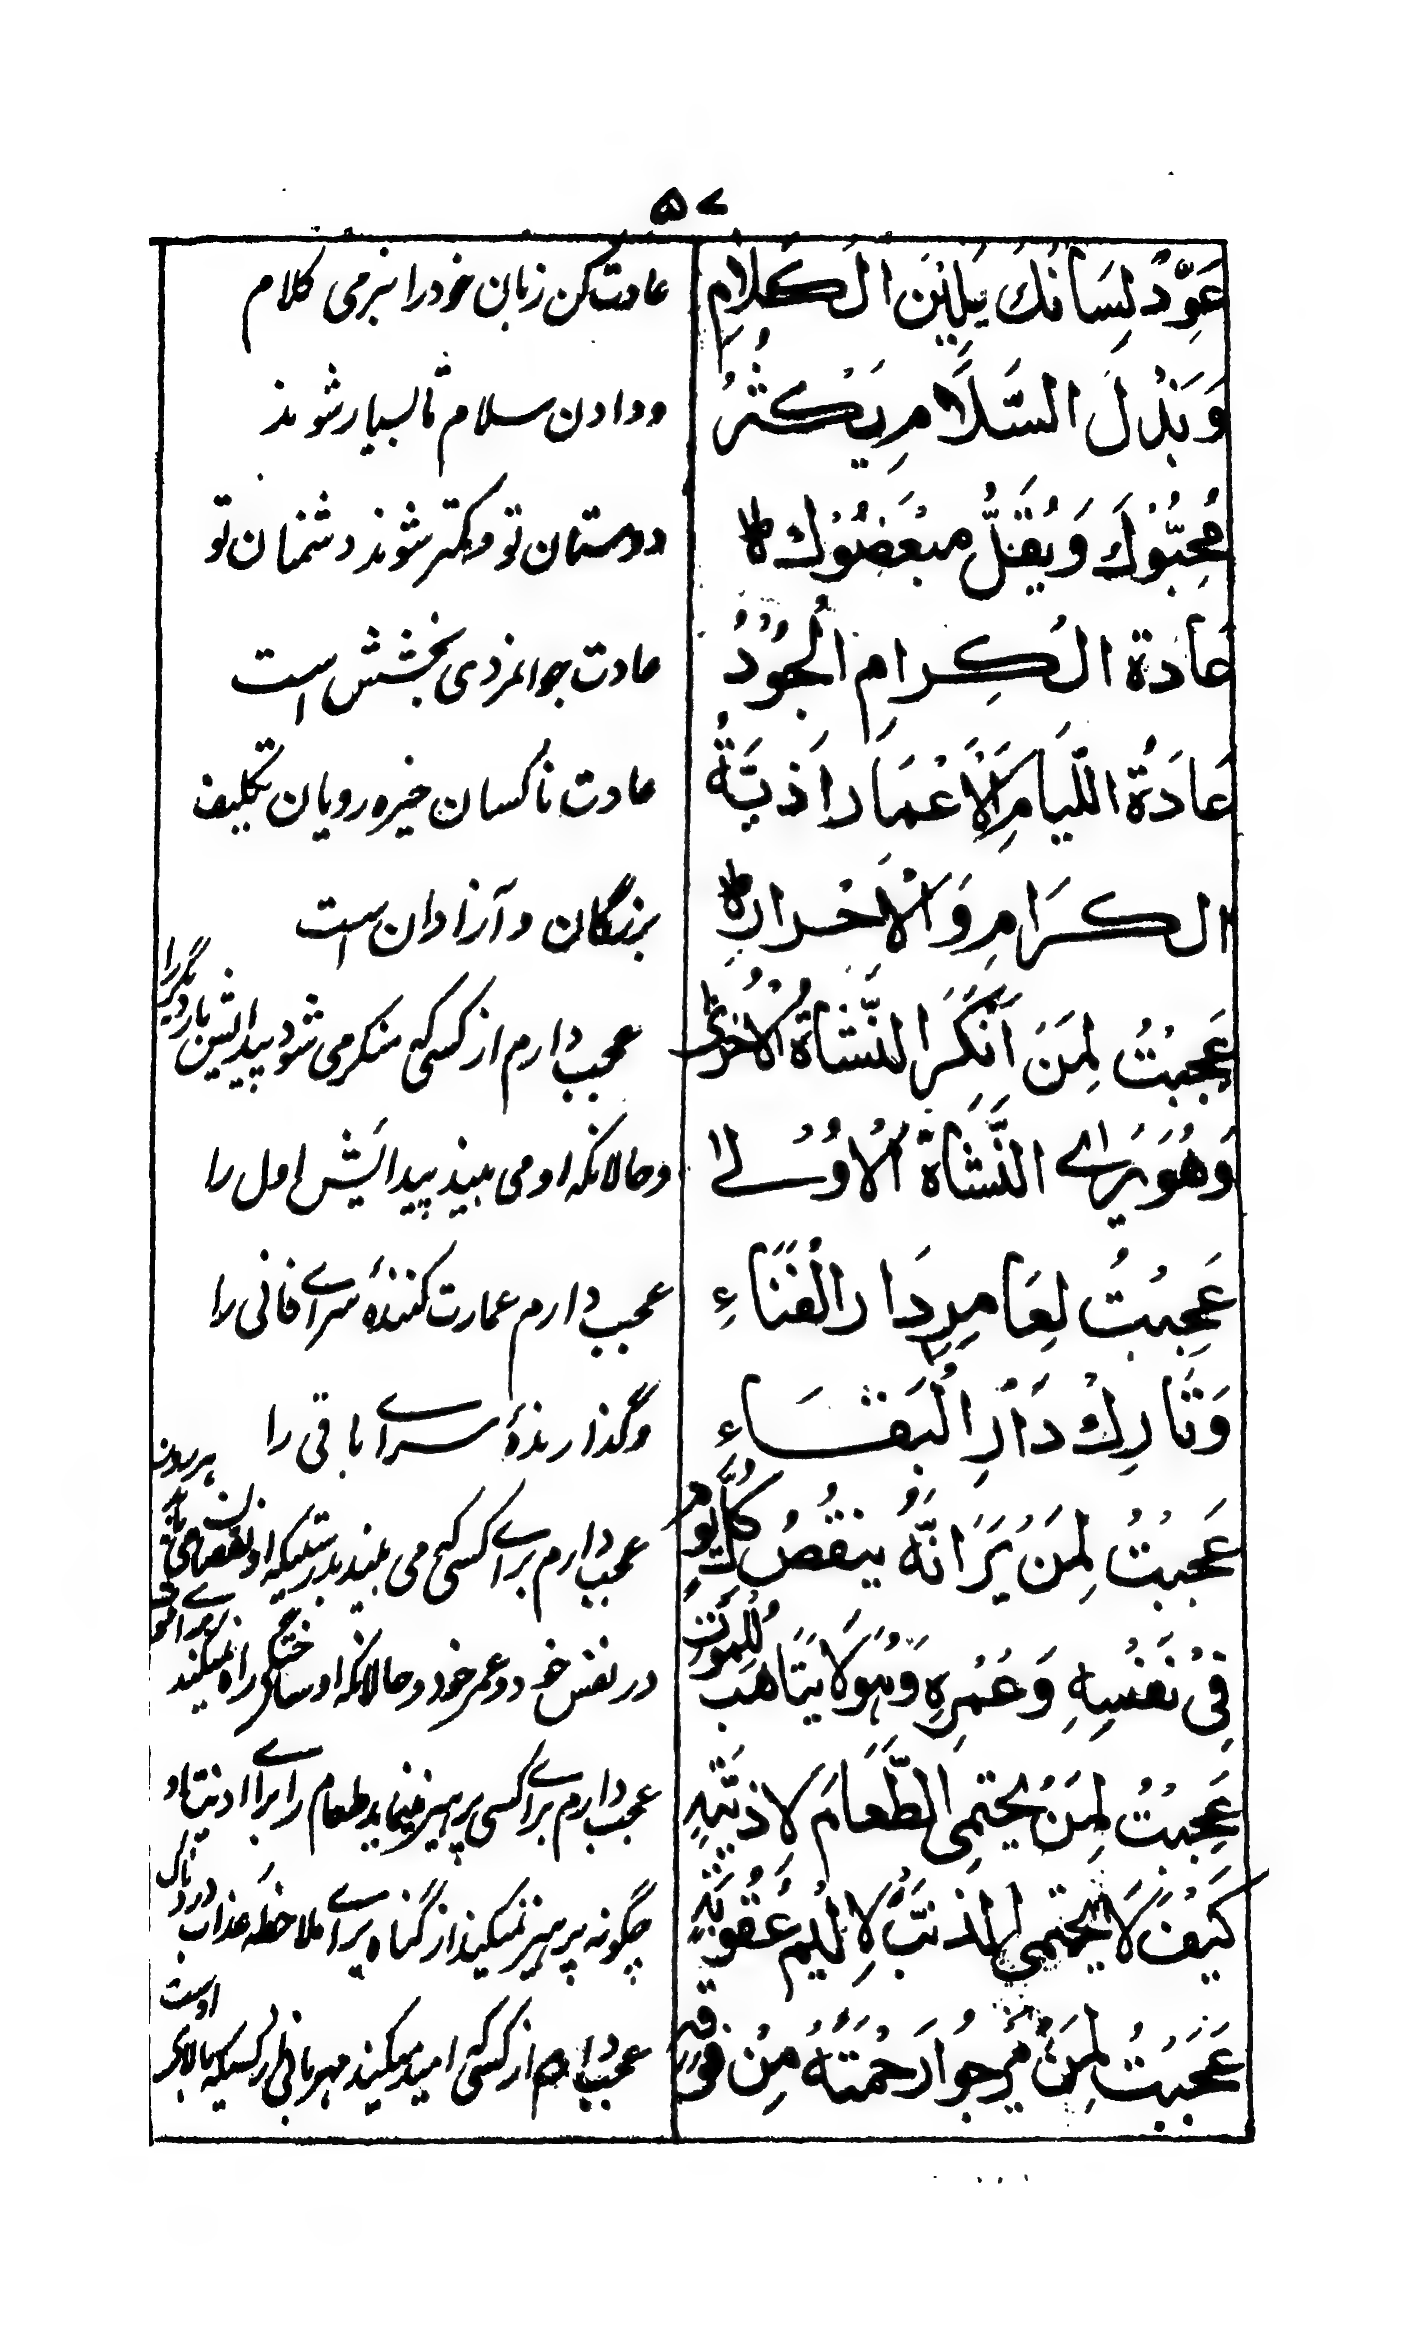 ۵۷
عَوِّدْ لِسَانَكَ بِلِيْنِ الْكَلَامِ
عادت کن زبان خود را بنرمی کلام
وَبَذْلَ السَّلَامِ يَكْثُرُ
ودادن سلام تا بسیار شوند
مُحِبُّوْكَ وَيُقَلُّ مبْغَضُوْكَ
دوستان تو و کمتر شوند دشمنان تو
عَادَة الْكِرامِ الْجُوْدُ
عادت جوانمردی بخشش است
عَادَةُ اللِّيَامِ الْاَعْمَار اَذِيَّةُ
عادت ناکسان خیره رویان تکلیف
الكرَامِ وَالْاَحْرارِ
بزرگان و آزادان است
عَجِبْتُ لِمَنْ اَنْكَرَ النَّشْاَةَ الْاُخْرٰى
عجب دارم از کسی که منکر می شود پیدایش بار دیگر را
وَهُوَ يَرٰے النَّشْاَةَ الْاُوْلٰے
وحالانکه او می بیند پیدایش اول را
عَجِبْتُ لِعَامِرِ دَارِ الْفَنَاءِ
عجب دارم عمارت کنندهٔ سراے فانی را
وَتَارِكْ دَارِ الْبَقَاءِ
وگذارندهٔ سراے باقی را
عَجِبْتُ لِمَنْ يَرَ انَّهُ ينقُصُ كُلَّ يَوْمٍ
عجب دارم براے کسی که می بیند بدرستیکه او نقصان می یابد هر روز
فِىْ نَفْسِهِ وَعُمْرِهِ وَهُوَ لَا يَتَاهَب لِلْمَوْت
در نفس خود و عمر خود و حالانکه او ساختگی را نمیکند براے موت
عَجِبْتُ لِمَنْ يحْتَمِى الطَّعَامَ لِاذيَّتِهِ
عجب دارم براے کسی پرهیز مینماید طعام را براے اذیتاو
كَيْفَ لَا يَحْتَمِى الذنْبَ لِاَلِيْم عُقُوْبَتِهِ
چگونه پرهیز نمیکند از گناه براے ملاحظه عذاب دردناک اوست
عَجِبْتُ لِمَنْ يَرْجُوا رَحْمَتَهُ مِنْ فَوْقه
عجب دارم از کسی که امید میکند مهربانی از کسیکه بالاے